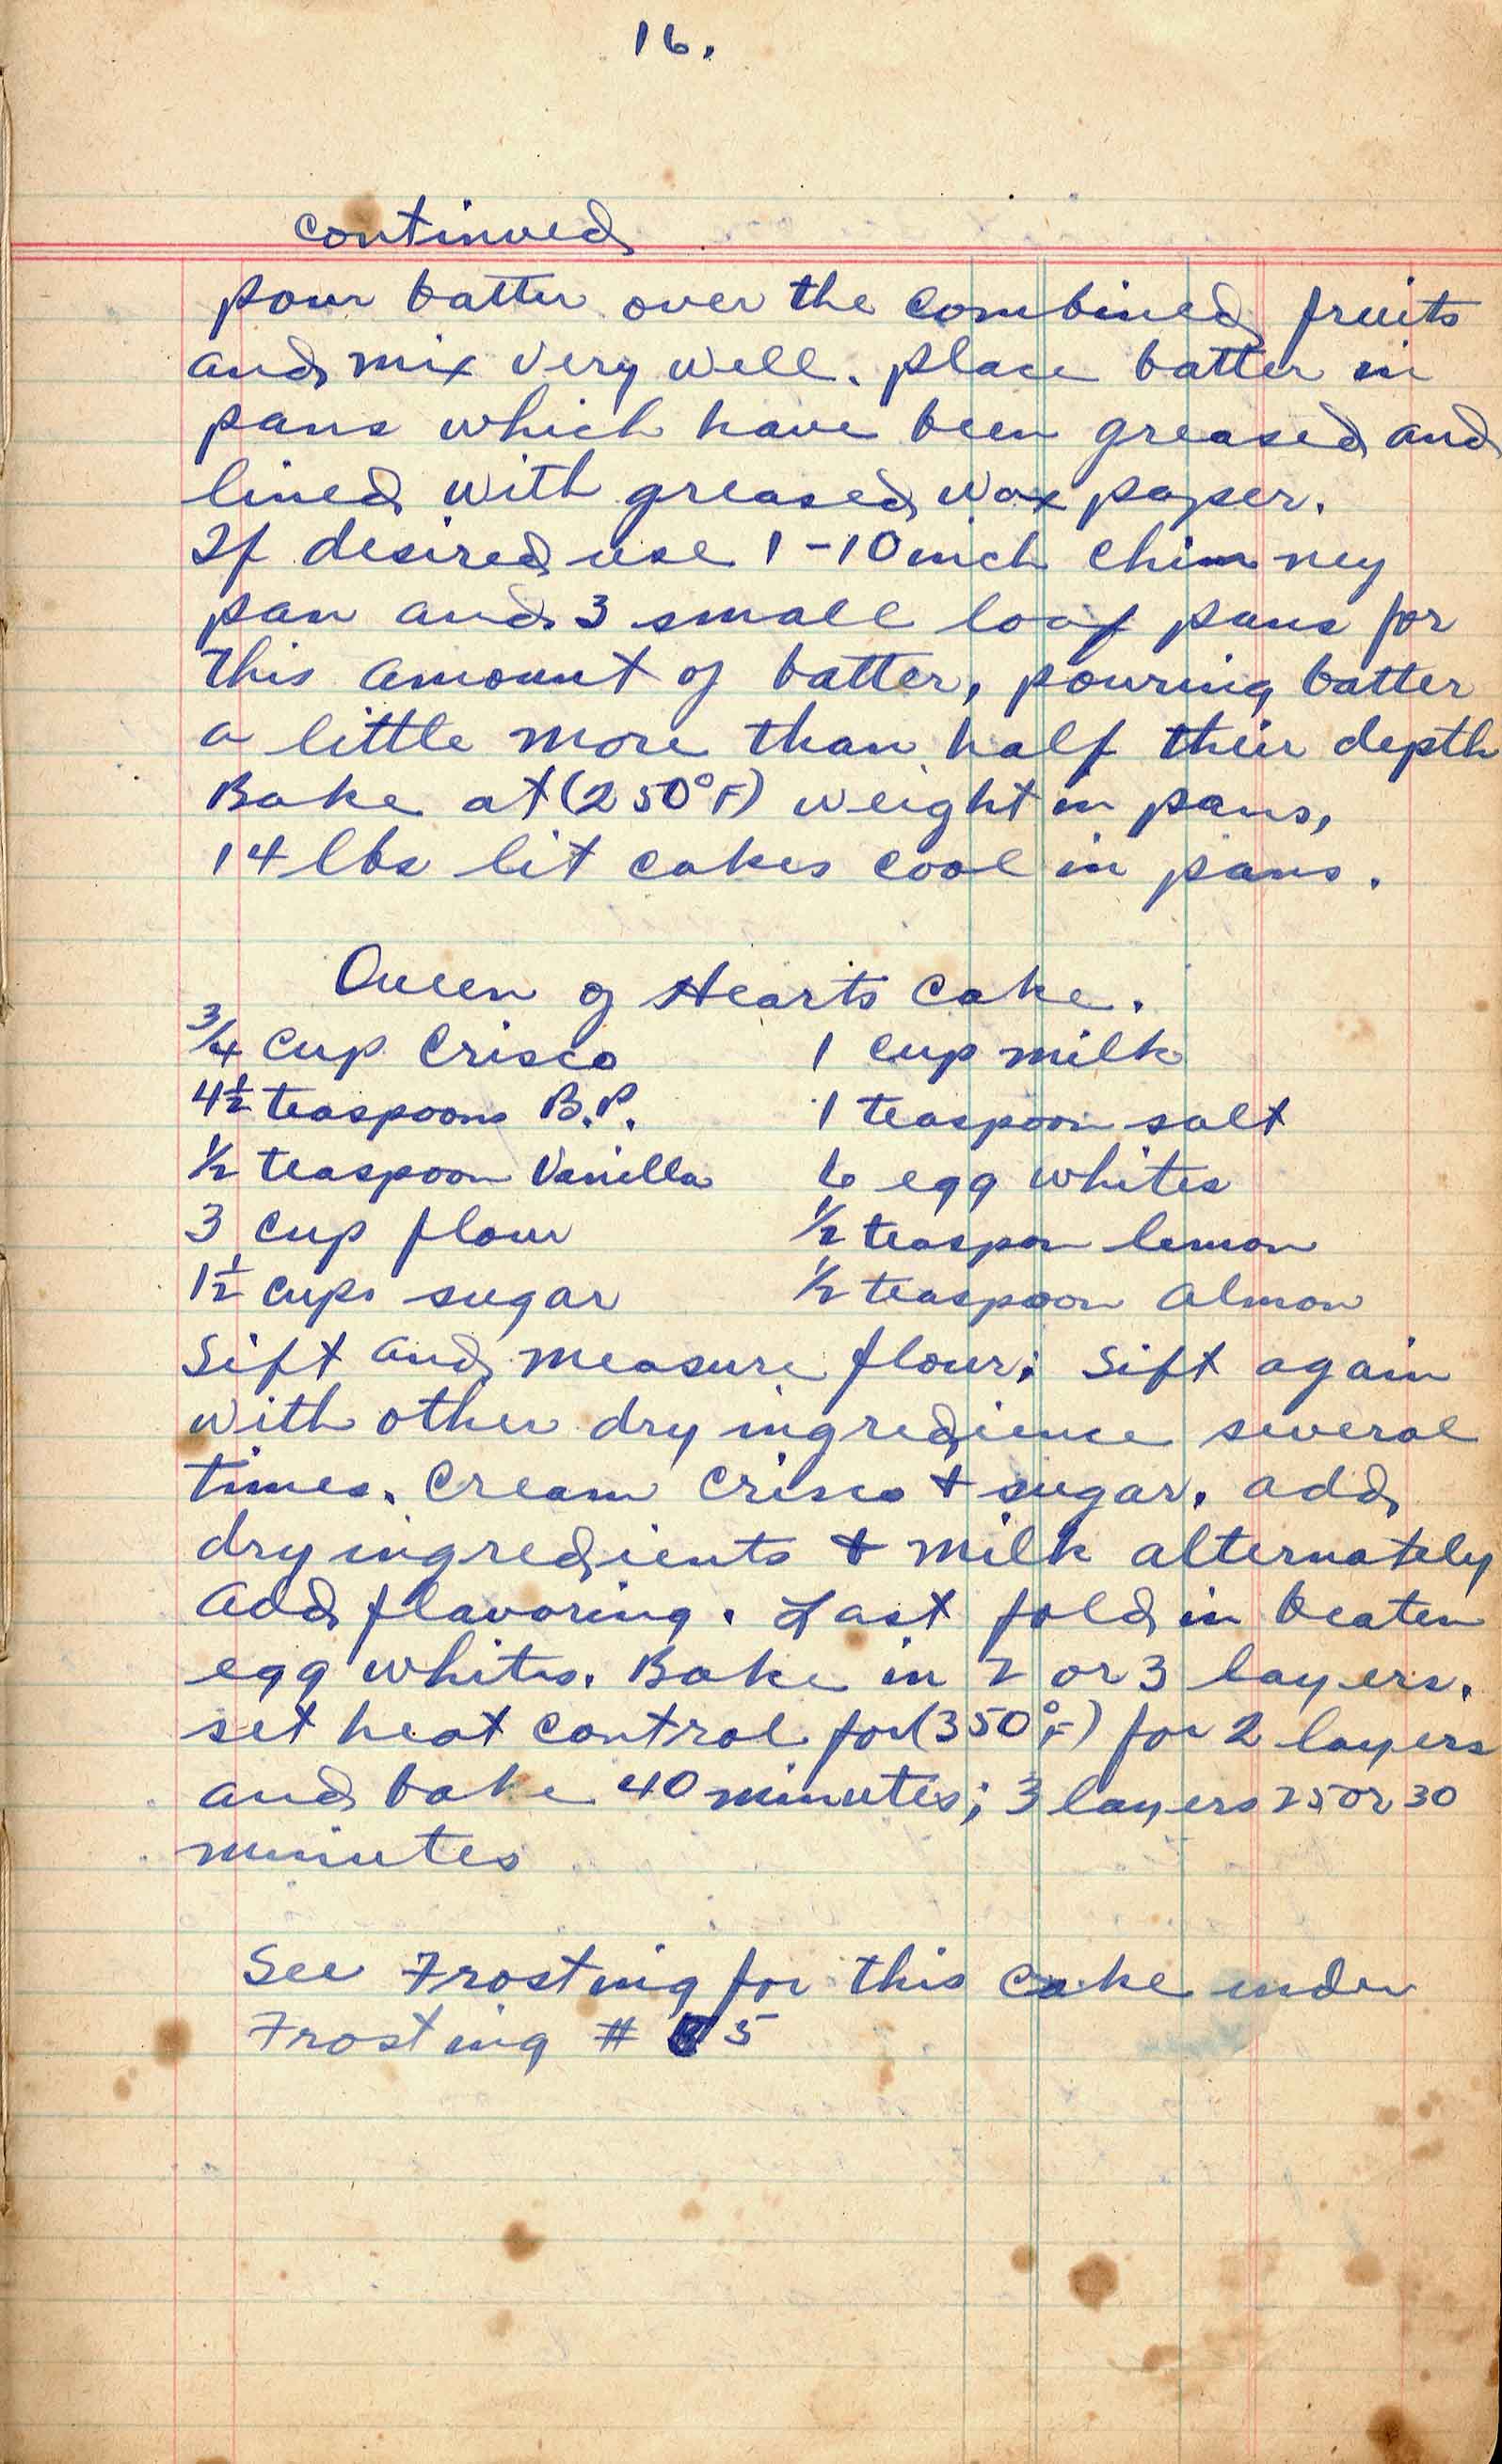 16.
continued
pour batter over the combined fruits
and mix very well. place batter in
pans which have been greased and
lined with greased wax paper.
If desired use 1-10 inch chimney
pan and 3 small loaf pans for
this amount of batter, pouring batter
a little more than half their depth
Bake at (250°F) weight in pans,
14 lbs lit cakes cool in pans.
Queen of Hearts Cake.
3/4 cup Crisco 1 cup milk
4½ teaspoons B.P. 1 teaspoon salt
½ teaspoon Vanilla 6 egg whites
3 cup flour ½ teaspon lemon
1½ cups sugar ½ teaspoon almon
Sift and measure flour; Sift again
with other dry ingredience several
times. Cream Crisco + sugar. add
dry ingredients + milk alternately
add flavoring. Last fold in beaten
egg whites. Bake in 2 or 3 layers.
set heat control for (350°F) for 2 layers
and bake 40 minutes; 3 layers 25 or 30
minutes
See Frosting for this cake under
Frosting # 5